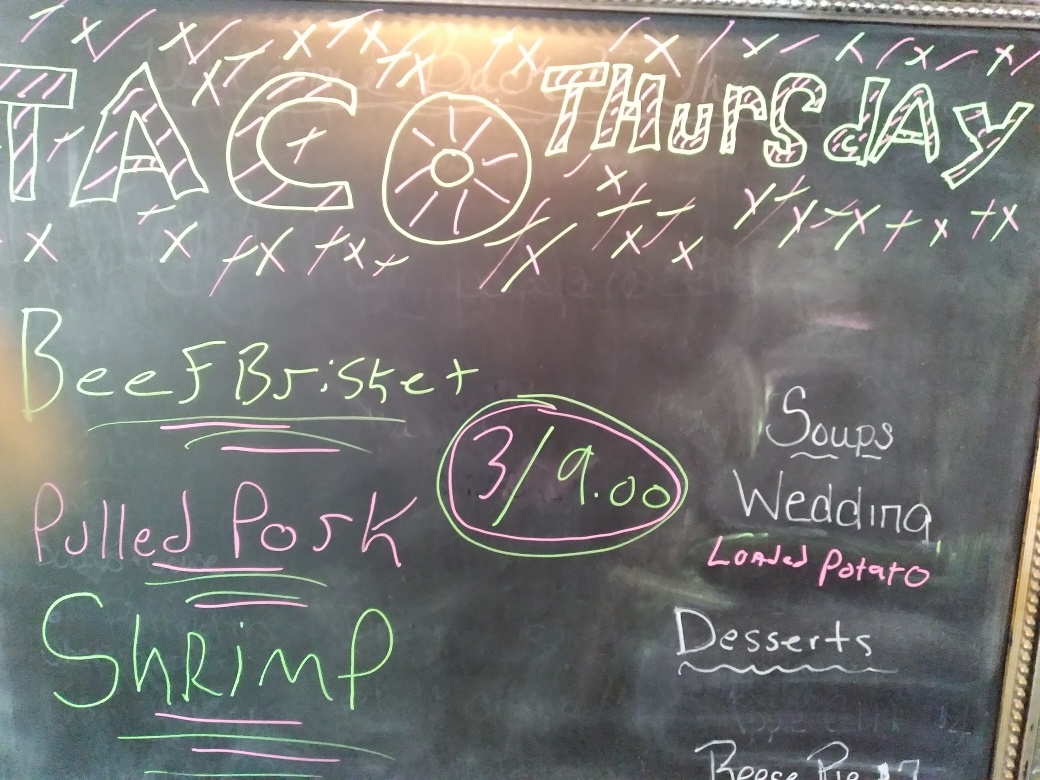 TACO THURSdAY
Beef Brisket
3/9.00
Pulled Pork
Shrimp
Soups
Wedding
Loaded Potato
Desserts
Reese Pie